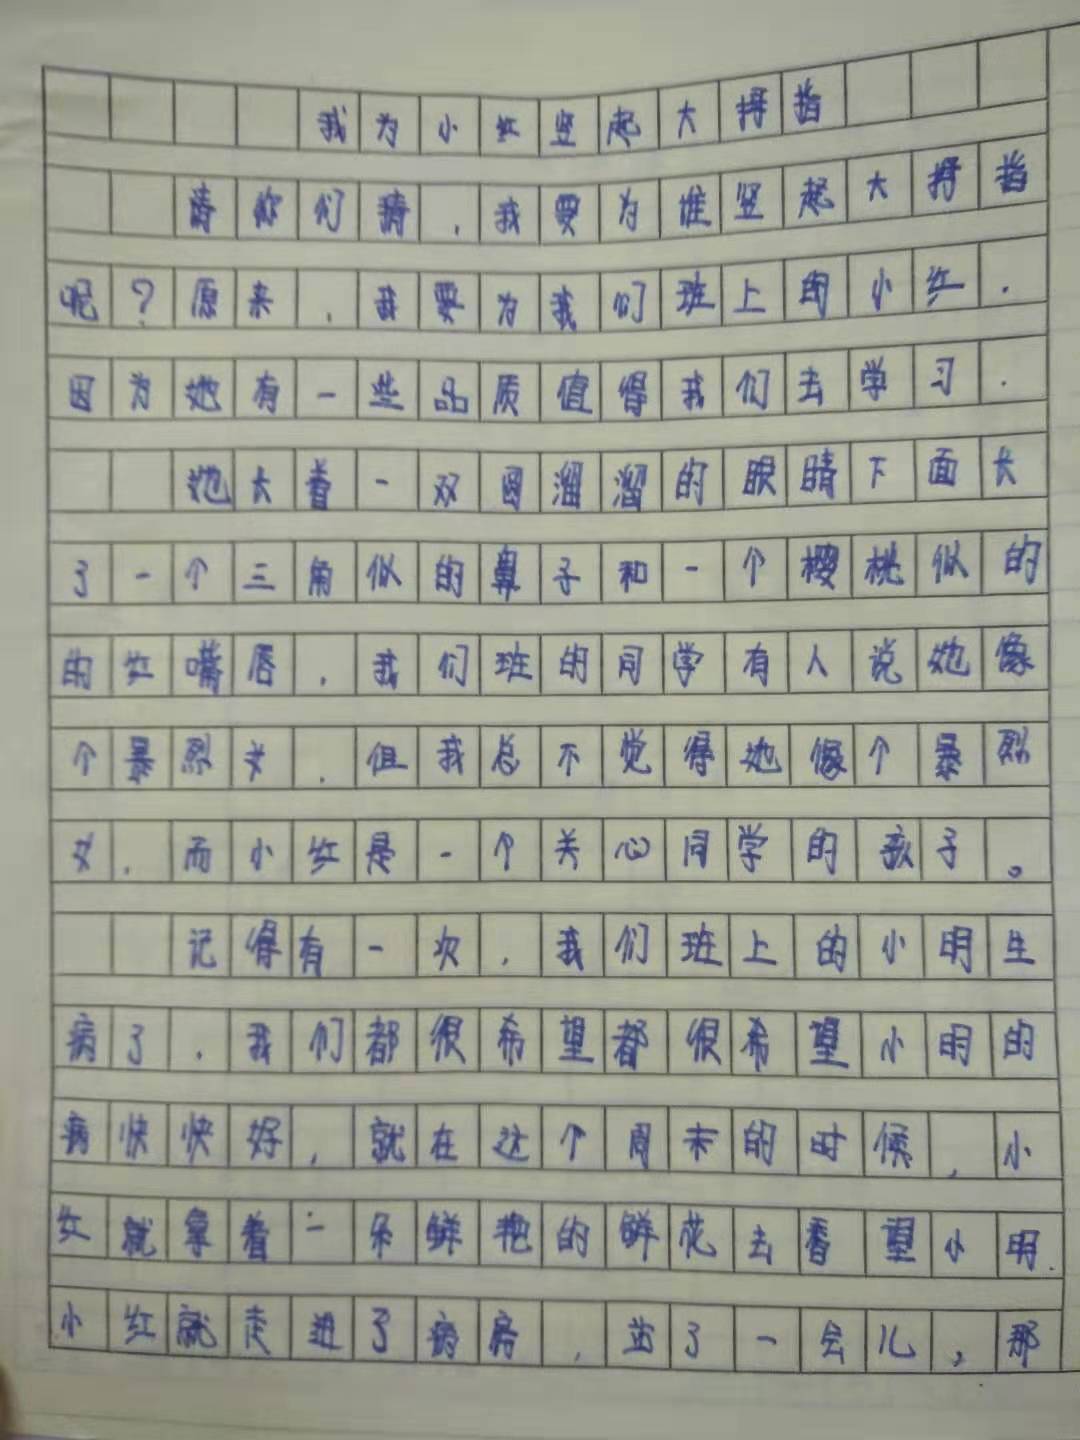 我为小红竖起大拇指
请你们猜,我要为谁竖起大拇指
呢?原来,我要为我们班上的小红.
因为她有一些品质值得我们去学习.
她大着一双圆溜溜的眼睛下面长
了一个三角似的鼻子和一个樱桃似的
的红嘴唇,我们班的同学有人说她像
个暴烈女,但我总不觉得她像个暴烈
女,而小红是一个关心同学的孩子。
记得有一次,我们班上的小明生
病了,我们都很希望都很希望小明的
病快快好,就在这个周末的时候,小
红就拿着一朵鲜艳的鲜花去看望小明.
小红就走进了病房,站了一会儿,那